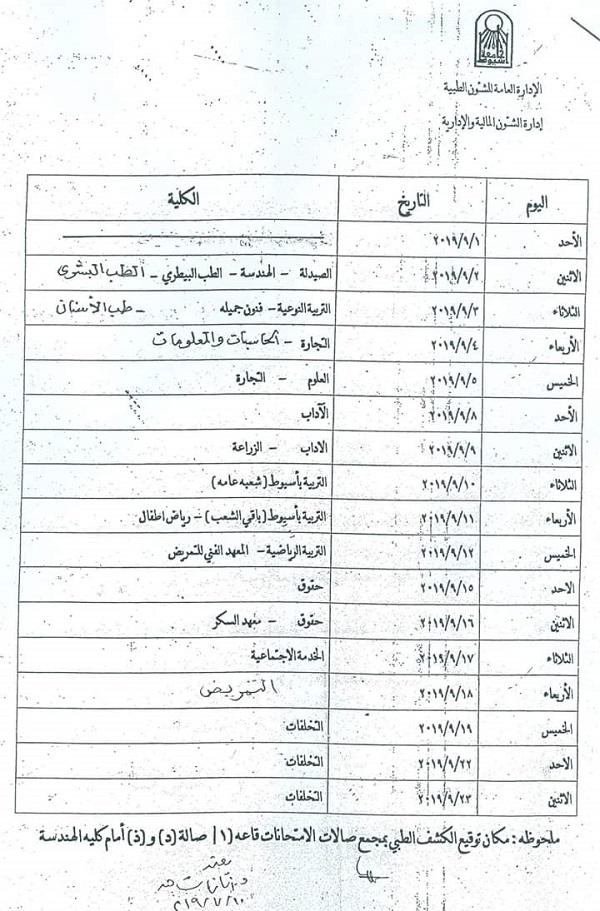 جامعة
أسيوط
الإدارة العامة للشئون الطبية
إدارة الشئون المالية والإدارية
اليوم التاريخ الكلية
الأحد ٢٠١٩/٩/١
الاثنين ٢٠١٩/٩/٢ الصيدلة - الهندسة - الطب البيطري - الطب البشرى
الثلاثاء ٢٠١٩/٩/٣ التربية النوعية - فنون جميله - طب الأسنان
الأربعاء ٢٠١٩/٩/٤ التجارة - الحاسبات والمعلومات
الخميس ٢٠١٩/٩/٥ العلوم - التجارة
الأحد ٢٠١٩/٩/٨ الآداب
الاثنين ٢٠١٩/٩/٩ الاداب - الزراعة
الثلاثاء ٢٠١٩/٩/١٠ التربية بأسيوط (شعبه عامه)
الأربعاء ٢٠١٩/٩/١١ التربية بأسيوط (باقي الشعب) - رياض اطفال
الخميس ٢٠١٩/٩/١٢ التربية الرياضية - المعهد الفني للتمريض
الاحد ٢٠١٩/٩/١٥ حقوق
الاثنين ٢٠١٩/٩/١٦ حقوق - معهد السكر
الثلاثاء ٢٠١٩/٩/١٧ الخدمة الاجتماعية
الأربعاء ٢٠١٩/٩/١٨ التمريض
الخميس ٢٠١٩/٩/١٩ التخلفات
الاحد ٢٠١٩/٩/٢٢ التخلفات
الاثنين ٢٠١٩/٩/٢٣ التخلفات
ملحوظه : مكان توقيع الكشف الطبي بمجمع صالات الامتحانات قاعه (١) صالة (د) و (ذ) أمام كليه الهندسة